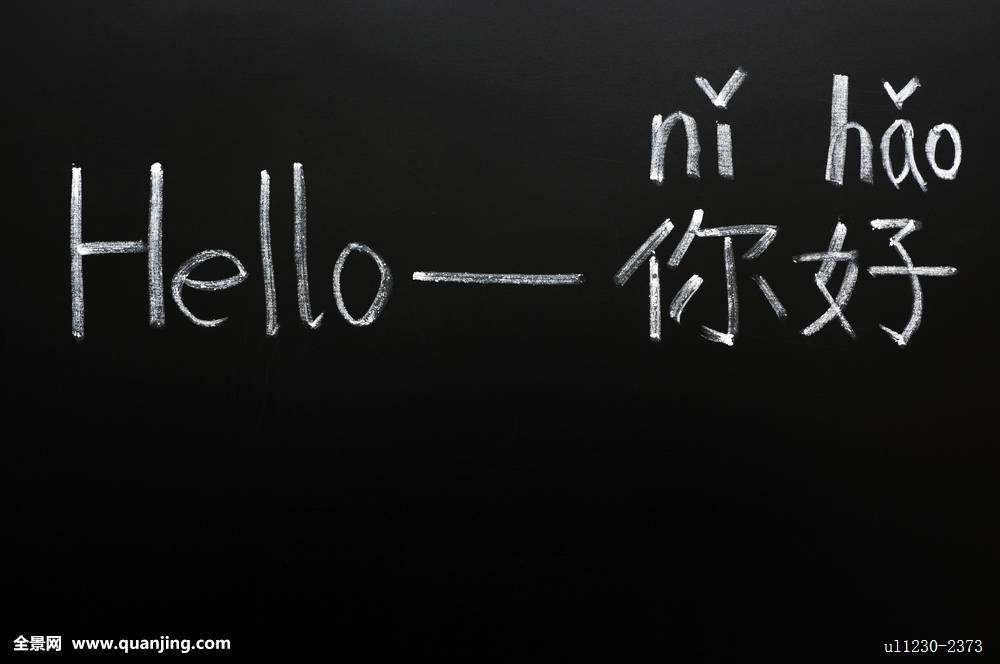 nǐ hǎo
Hello — 你好
全景网 www.quanjing.com
ul1230-2373